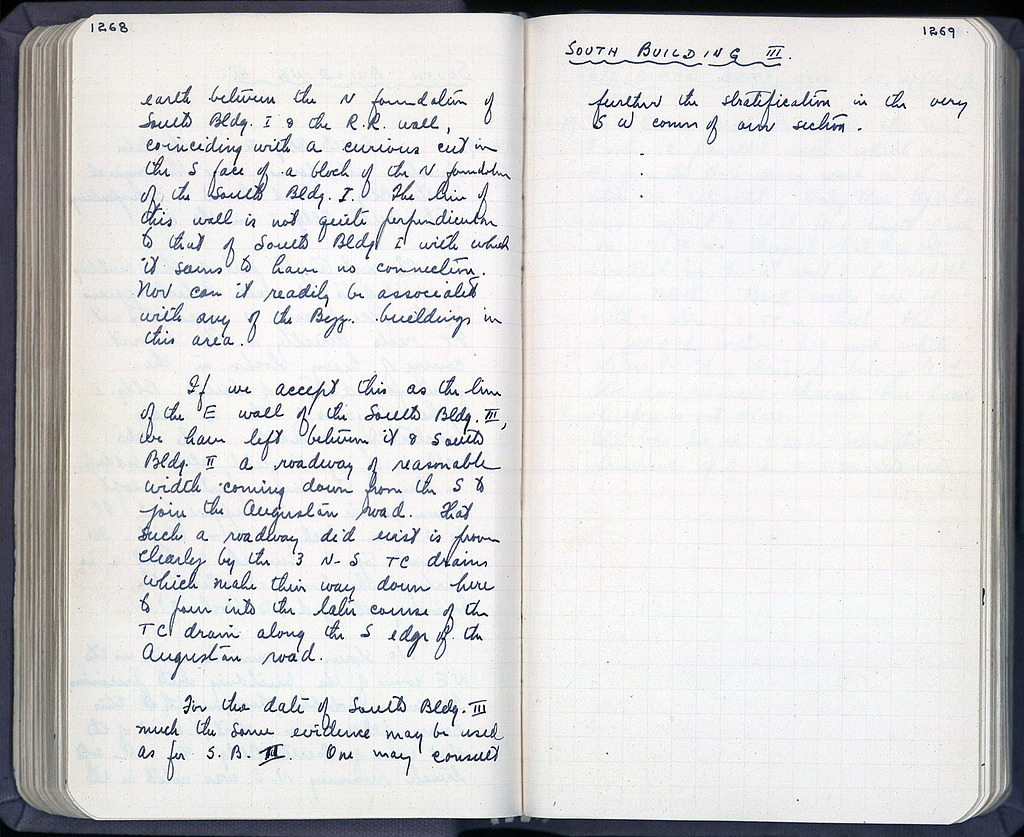 1268
earth between the N foundation of
South Bldg. I & the R.R. wall,
coinciding with a curious cut in
the S face of a block of the N foundation
of the South Bldg. I. The line of
this wall is not quite perpendicular
to that of South Bldg I with which
it seems to have no connection.
Nor can it readily be associated
with any of the Byz. buildings in
this area.
If we accept this as the line
of the E wall of the South Bldg. III,
we have left between it & South
Bldg. II a roadway of reasonable
width coming down from the S to
join the Augustan road. That
such a roadway did exist is proven
clearly by the 3 N-S TC drains
which make their way down here
to pour into the later course of the
TC drain along the S edge of the
Augustan road.
For the date of South Bldg. III
much the same evidence may be used
as for S.B. II. One may consult
1269
SOUTH BUILDING III.
further the stratification in the very
S W corner of our section.